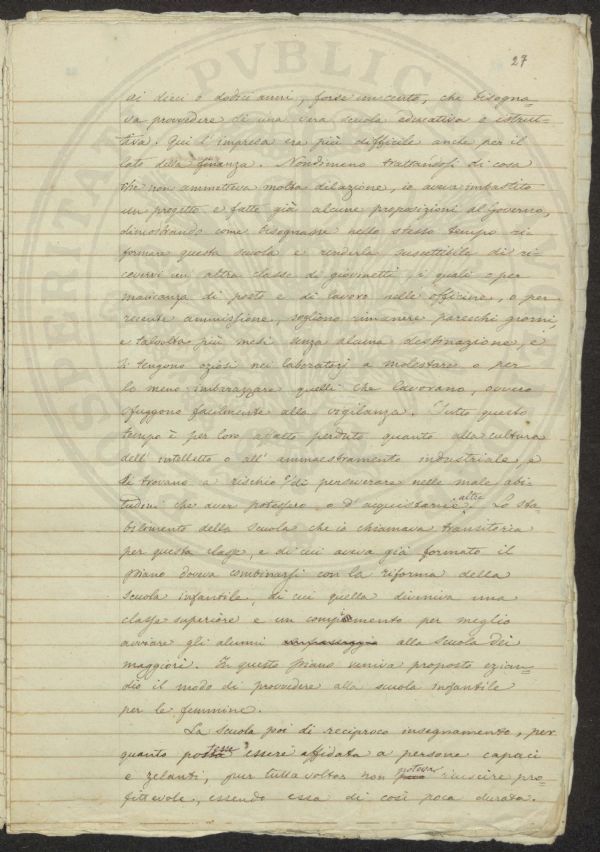 27
di dieci o dodici anni, forse un certo, che bisogna-
va provvedere di una vera scuola educativa e istrut-
tiva. Qui l'impresa era più difficile anche per il
lato della finanza. Nondimeno trattandosi di cosa
che non ammetteva molta dilazione, io aveva imbastito
un progetto e fatte già alcune proposizioni al Governo,
dimostrando come bisognasse nello stesso tempo ri-
formare questa scuola e renderla suscettibile di ri-
cevervi un altra classe di giovinetti i quali o per
mancanza di posto e di lavoro nelle officine, o per
recente ammissione, sogliono rimanere parecchi giorni,
e talvolta più mesi senza alcuna destinazione, e
si tengono oziosi nei laboratorj a molestare o per
lo meno imbarazzare quelli che lavorano, ovvero
sfuggono facilmente alla vigilanza. Tutto questo
tempo è per loro affatto perduto quanto alla cultura
dell'intelletto o all'ammaestramento industriale, e
si trovano a rischio di perseverare nelle male abi-
tudini che aver potessero o d'acquistarne altre. Lo sta-
bilimento della Scuola che io chiamava transitoria
per questa classe, e di cui aveva già formato il
piano doveva combinarsi con la riforma della
scuola infantile, di cui quella diveniva una
classe superiore e un compimento per meglio
avviare gli alunni alla scuola dei
maggiori. In questo piano veniva proposto ezian-
dio il modo di provvedere alla scuola infantile
per le femmine.
La scuola poi di reciproco insegnamento, per
quanto potesse essere affidata a persone capaci
e zelanti, pur tuttavolta non poteva riuscire pro-
fittevole, essendo essa di così poca durata.